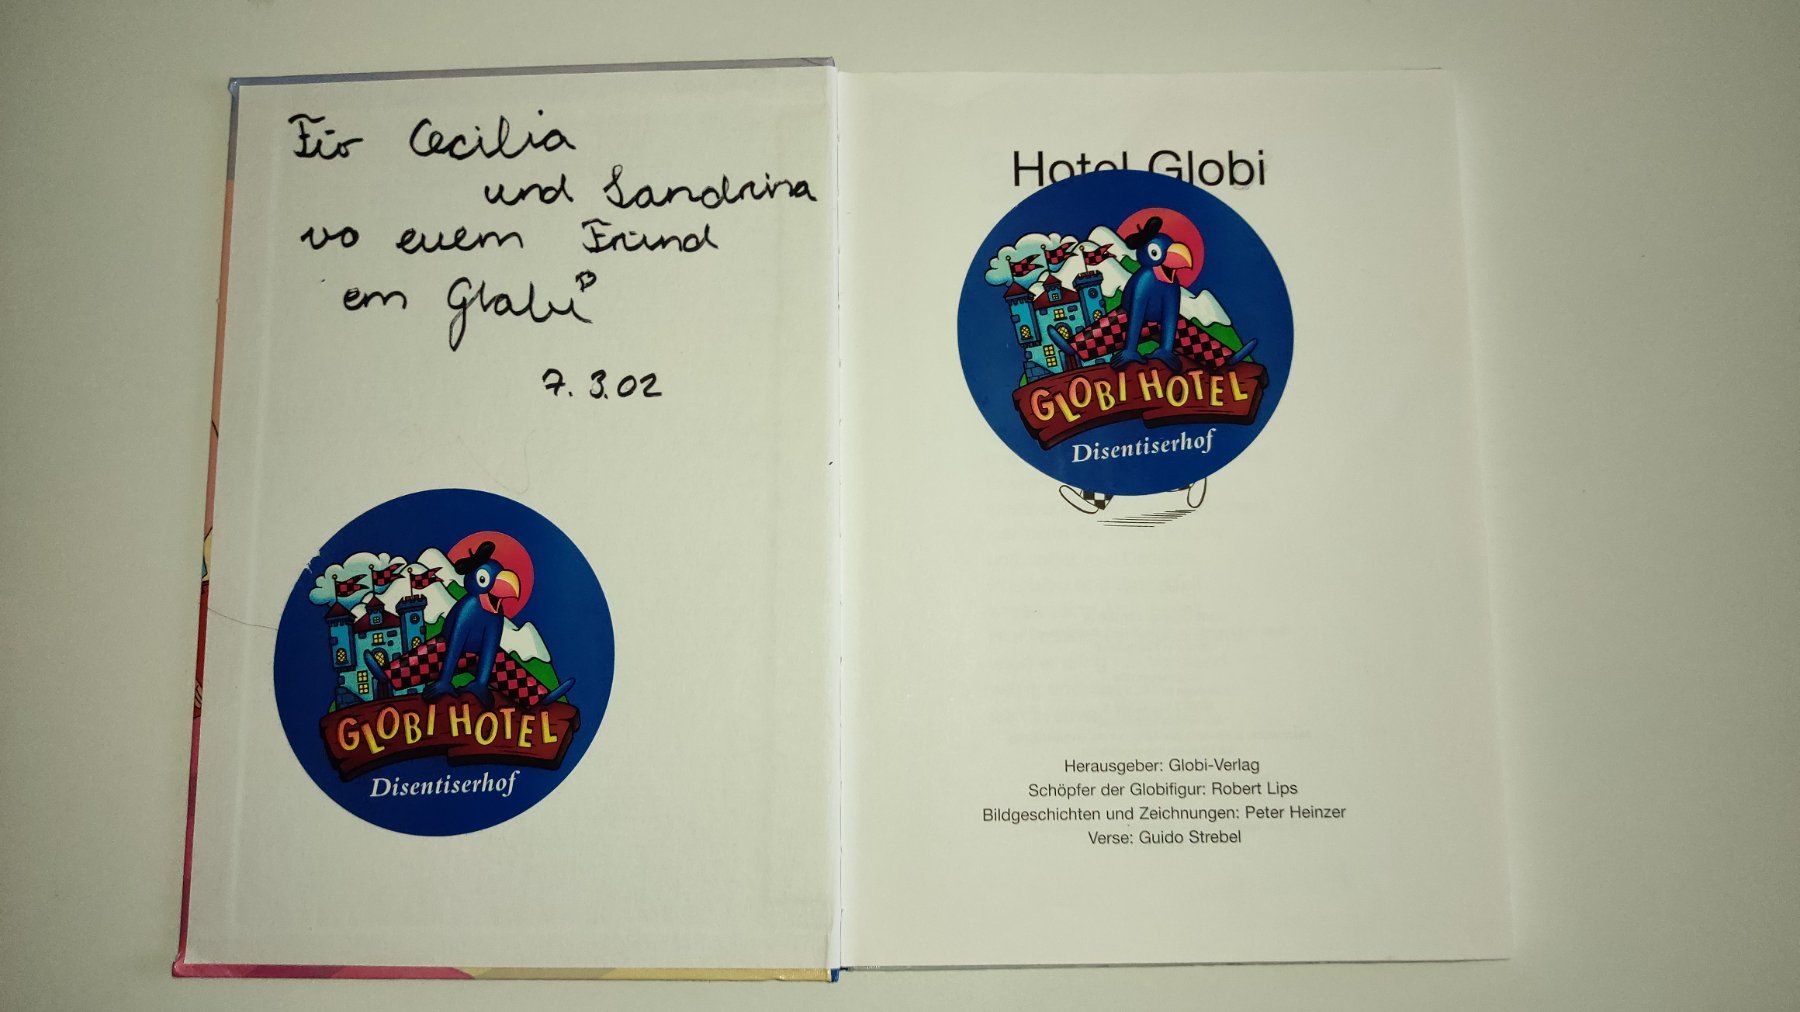 Für Cecilia
und Sandrina
vo euem Fründ
em Globi
7.3.02
GLOBI HOTEL
Disentiserhof
Hotel Globi
GLOBI HOTEL
Disentiserhof
Herausgeber: Globi-Verlag
Schöpfer der Globifigur: Robert Lips
Bildgeschichten und Zeichnungen: Peter Heinzer
Verse: Guido Strebel